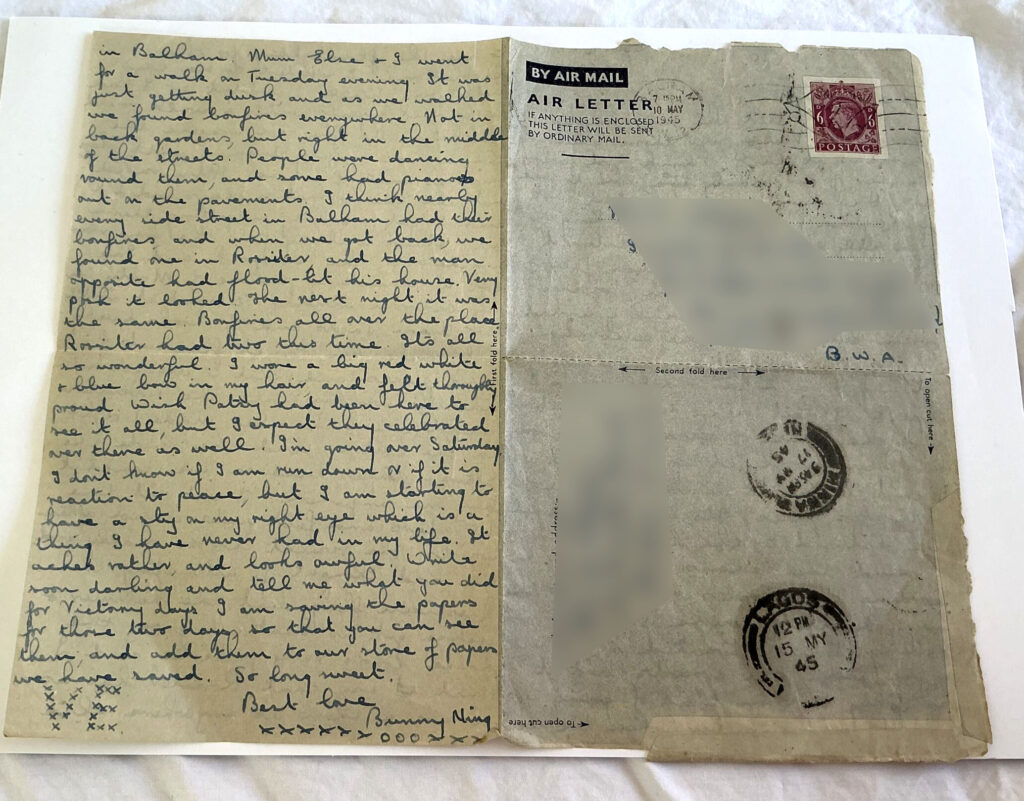 in Balham. Mum Else + I went
for a walk on Tuesday evening. It was
just getting dusk and as we walked
we found bonfires everywhere. Not in
back gardens, but right in the middle
of the streets. People were dancing
round them, and some had pianos
out on the pavements. I think nearly
every side street in Balham had their
bonfires, and when we got back, we
found one in Rossiter, and the man
opposite had flood-lit his house. Very
posh it looked. The next night it was
the same. Bonfires all over the place
Rossiter had two this time. Its all
so wonderful. I wore a big red white
+ blue bow in my hair, and felt
proud. Wish had been here to
see it all, but I expect they celebrated
over there as well. I'm going over Saturday
I don't know if I am run down or if it is
reaction to peace, but I am starting to
have a sty on my right eye which is a
thing I have never had in my life. It
aches rather, and looks awful. Write
soon darling and tell me what you did
for Victory days. I am saving the papers
for those two days, so that you can see
them, and add them to our store of papers
we have saved. So long sweet.
Best love
Bunny Ning
xxxxxxx ooo xxx
First fold here
BY AIR MAIL
AIR LETTER
IF ANYTHING IS ENCLOSED
THIS LETTER WILL BE SENT
BY ORDINARY MAIL.
7.15PM
10 MAY
1945
6D 6D
POSTAGE
B.W.A.
Second fold here
To open cut here
17 MY
45
LAGOS
12 PM
15 MY
45
To open cut here